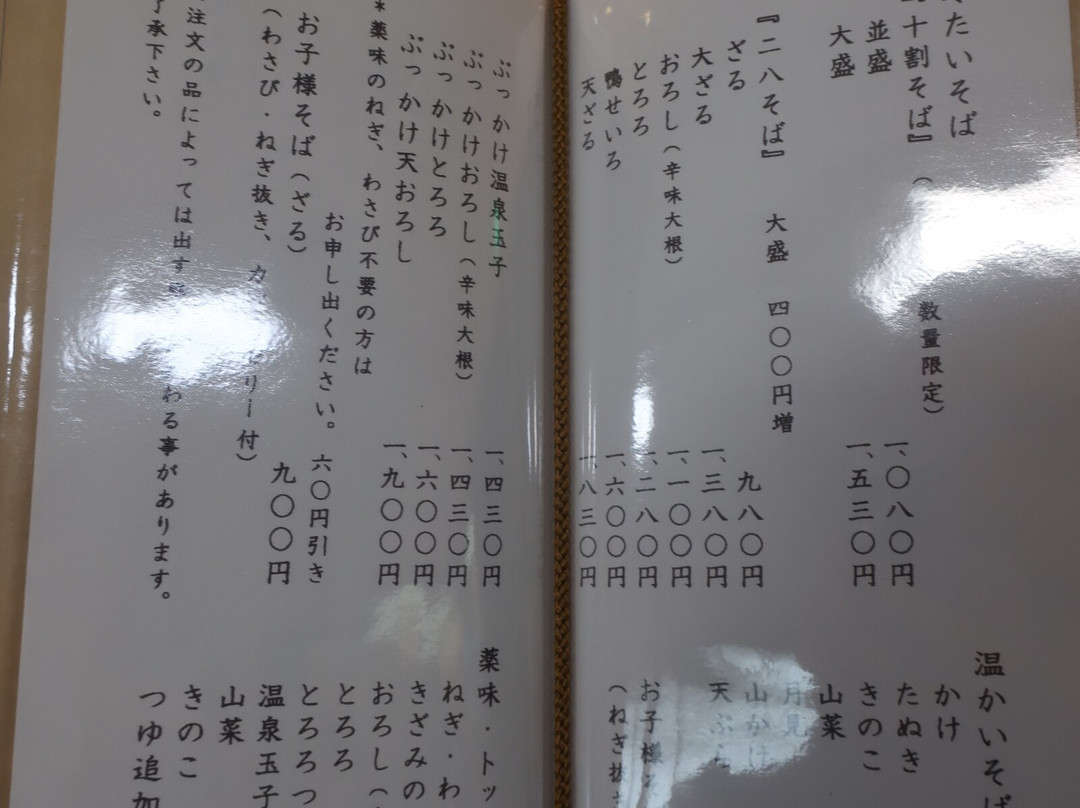 たいそば
十割そば』(
数量限定)
並盛 一、〇八〇円
大盛 一、五三〇円
『二八そば』 大盛 四〇〇円増
ざる 九八〇円
大ざる 一、三八〇円
おろし(辛味大根) 一、一〇〇円
とろろ 一、二八〇円
鴨せいろ 一、六〇〇円
天ざる 一、八三〇円
ぶっかけ温泉玉子 一、四三〇円
ぶっかけおろし(辛味大根) 一、四三〇円
ぶっかけとろろ 一、六〇〇円
ぶっかけ天おろし 一、九〇〇円
*薬味のねぎ、わさび不要の方は
お申し出ください。六〇円引き
お子様そば(ざる) 九〇〇円
(わさび・ねぎ抜き、
リー付)
注文の品によっては出す
わる事があります。
了承下さい。
温かいそば
かけ
たぬき
きのこ
山菜
月見
山かけ
天ぷら
お子様
(ねぎ抜
薬味・トッ
ねぎ・わ
きざみの
おろし(
とろろ
とろろつ
温泉玉子
山菜
きのこ
つゆ追加